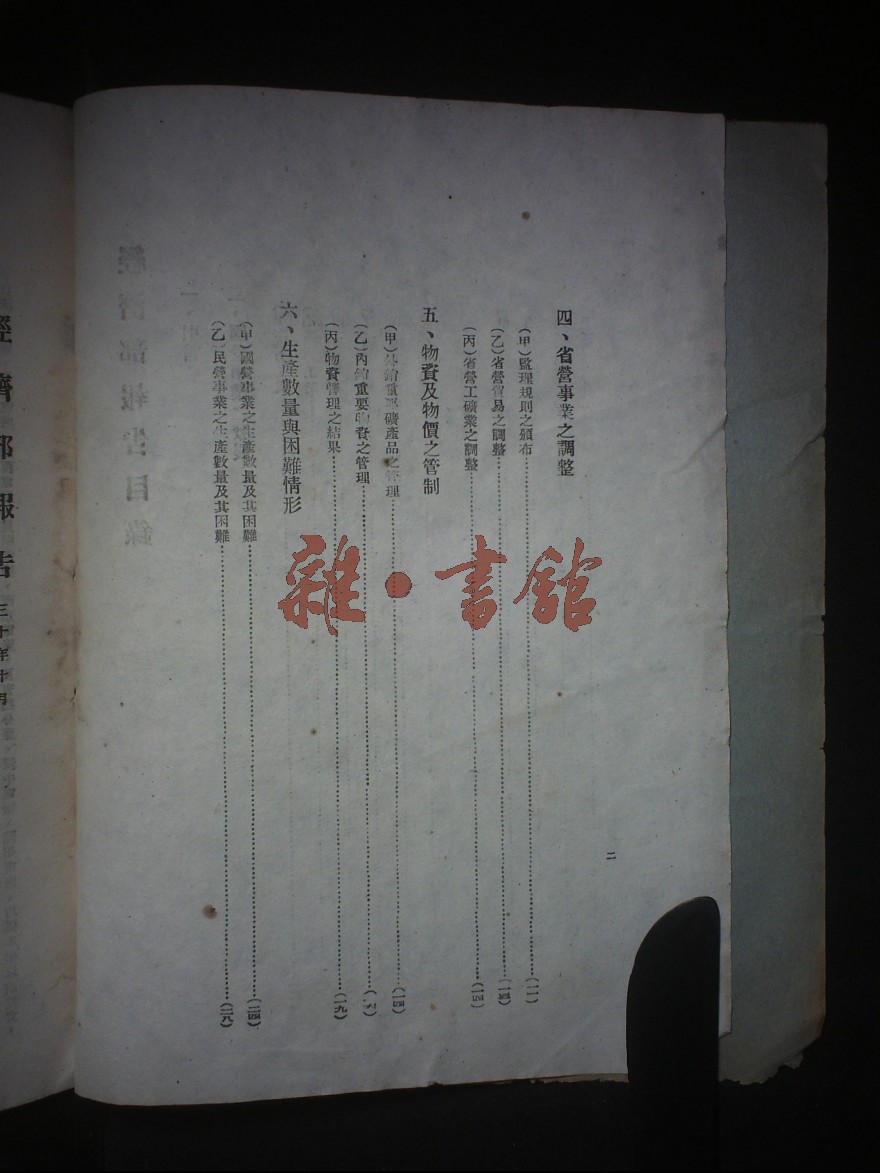 四、省營事業之調整
(甲)監理規則之頒布……(一一)
(乙)省營貿易之調整……(一四)
(丙)省營工礦業之調整……(一四)
五、物資及物價之管制
(甲)外銷重要礦產品之管理……(一四)
(乙)內銷重要物資之管理……
(丙)物資管理之結果……(一九)
六、生產數量與困難情形
(甲)國營事業之生產數量及其困難……(二四)
(乙)民營事業之生產數量及其困難……(二八)
二
經濟部報告 三十年十月
雜·書館